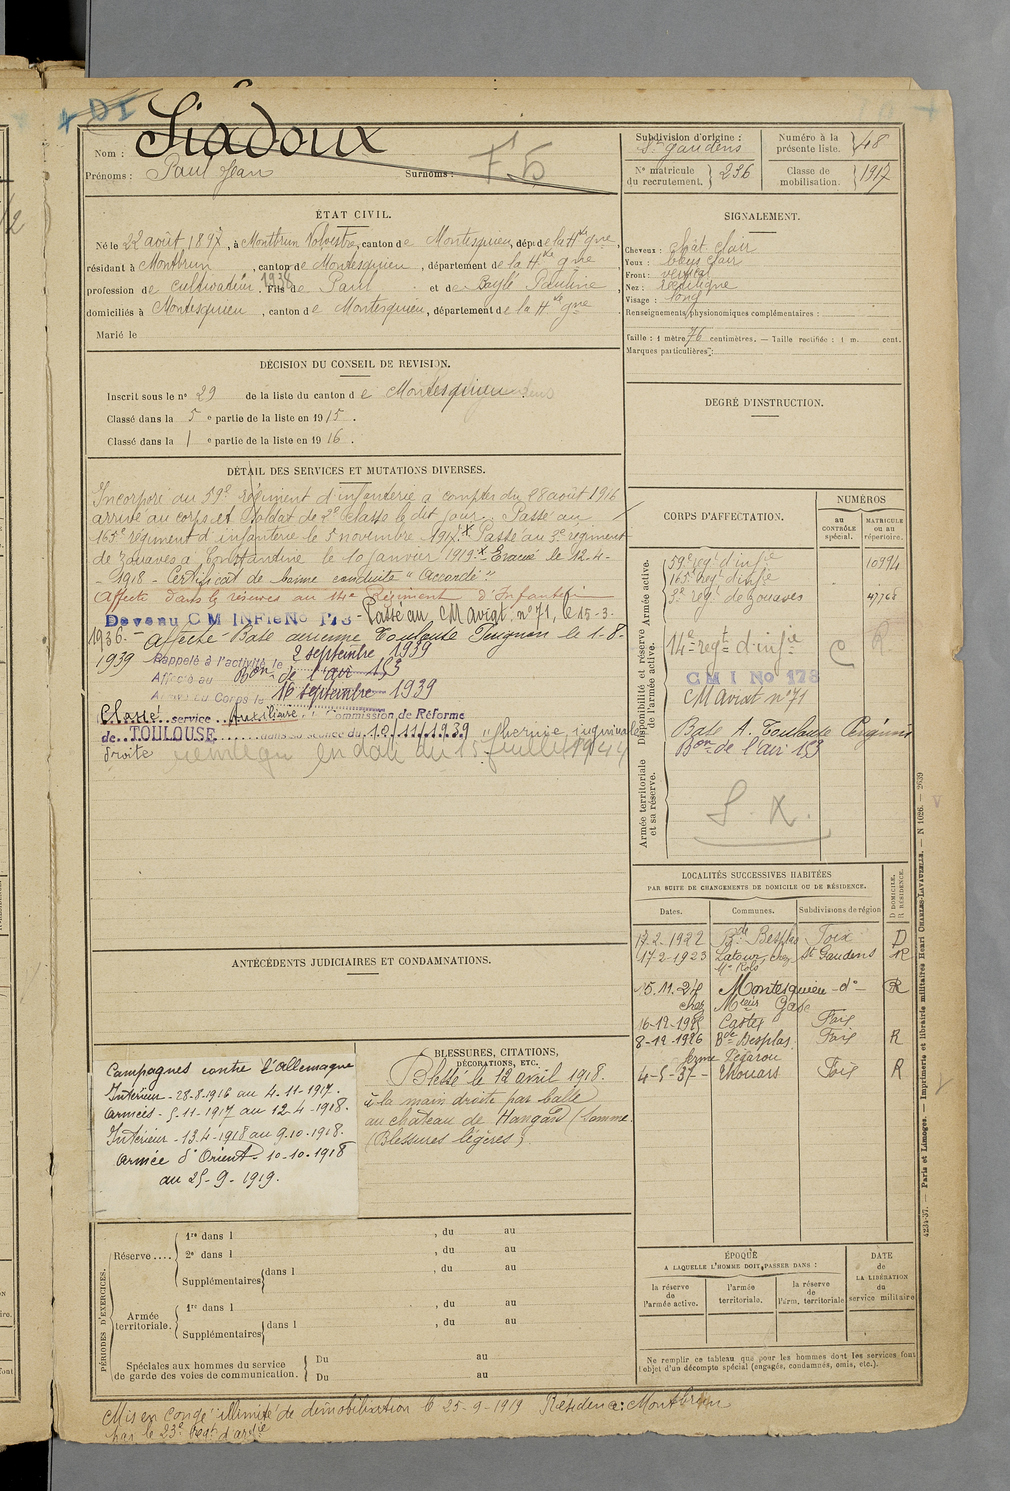 DI
Nom : Siadoux
Prénoms : Paul Jean Surnoms : F5
Subdivision d'origine : St Gaudens
Numéro à la présente liste. 48
No matricule du recrutement. 236
Classe de mobilisation. 1917
ÉTAT CIVIL.
Né le 22 août 1897, à Montbrun Volvestre, canton de Montesquieu, dép. de la Hte Gne
résidant à Montbrun, canton de Montesquieu, département de la Hte Gne
profession de cultivateur. Fils de Paul et de Baylé Pauline
domiciliés à Montesquieu, canton de Montesquieu, département de la Hte Gne
Marié le
SIGNALEMENT.
Cheveux : chât. clair
Yeux : bleus clair
Front :
Nez : rectiligne
Visage : long
Renseignements physionomiques complémentaires :
Taille : 1 mètre 76 centimètres. — Taille rectifiée : 1 m. cent.
Marques particulières :
DÉCISION DU CONSEIL DE REVISION.
Inscrit sous le no 29 de la liste du canton de Montesquieu
Classé dans la 5 e partie de la liste en 1915.
Classé dans la 1 e partie de la liste en 1916.
DEGRÉ D'INSTRUCTION.
DÉTAIL DES SERVICES ET MUTATIONS DIVERSES.
Incorporé au 59e régiment d'infanterie à compter du 28 août 1916
arrivé au corps et soldat de 2e classe le dit jour. Passé au
165e régiment d'infanterie le 5 novembre 1917. Passé au 3e régiment
de zouaves à Constantine le 10 janvier 1919. Evacué le 12-4-
-1918 - Certificat de bonne conduite "Accordé"
Affecté dans la réserve au 14e Régiment d'Infanterie
Devenu C M INFIE No 178 - Passé au CM aviat. no 71, le 15-3-
1936. - affecté Base aérienne Toulouse Pérignon le 1-8-
1939 Rappelé à l'activité le 2 septembre 1939
Affecté au Bon de l'air 153
Arrivé au Corps le 16 septembre 1939
Classé service Auxiliaire Commission de Réforme
de TOULOUSE dans sa séance du 10/11/1939 "hernie inguinale
droite
CORPS D'AFFECTATION.
NUMÉROS
au CONTRÔLE spécial.
MATRICULE ou au répertoire.
Armée active.
59e régt d'infie 10994
165e régt d'infie
3e régt de zouaves 47768
Disponibilité et réserve de l'armée active.
14e régt d'infie C. R.
CMI No 178
CM aviat no 71
Base A. Toulouse Pérignon
Bon de l'air 153
Armée territoriale et sa réserve.
S. X.
LOCALITÉS SUCCESSIVES HABITÉES
PAR SUITE DE CHANGEMENTS DE DOMICILE OU DE RÉSIDENCE.
Dates. Communes. Subdivisions de région D DOMICILE. R RÉSIDENCE.
17-2-1922 Bde Besplas Foix D
17-2-1923 Latour, chez St Gaudens R
15.11.24 Montesquieu -do- R
chez Gase
16-12-1925 Castex Foix
8-12-1926 Bde Besplas. Foix R
ferme Pégarou
4-5-37- Thouars Foix R
ANTÉCÉDENTS JUDICIAIRES ET CONDAMNATIONS.
Campagnes contre l'Allemagne
Intérieur - 28-8-1916 au 4-11-1917.
Armées - 5-11-1917 au 12-4-1918.
Intérieur - 13-4-1918 au 9-10-1918.
Armée d'Orient - 10-10-1918
au 25-9-1919.
BLESSURES, CITATIONS,
DÉCORATIONS, ETC.
Blessé le 12 avril 1918.
à la main droite par balle
au château de Hangard (Somme.
(Blessures légères)
PÉRIODES D'EXERCICES.
Réserve....
1re dans l , du au
2e dans l , du au
Supplémentaires dans l , du au
Armée territoriale.
1re dans l , du au
Supplémentaires dans l , du au
Spéciales aux hommes du service de garde des voies de communication.
Du au
Du au
ÉPOQUE
A LAQUELLE L'HOMME DOIT PASSER DANS :
la réserve de l'armée active.
l'armée territoriale.
la réserve de l'arm. territoriale
DATE de LA LIBÉRATION du service militaire
Ne remplir ce tableau que pour les hommes dont les services font
l'objet d'un décompte spécial (engagés, condamnés, omis, etc.).
Mis en congé illimité de démobilisation le 25-9-1919 Résidence : Montbrun
par le 23e Régt d'artie
4234-37. — Paris et Limoges. — Imprimerie et librairie militaires Henri CHARLES-LAVAUZELLE. — N 1026. — 2639